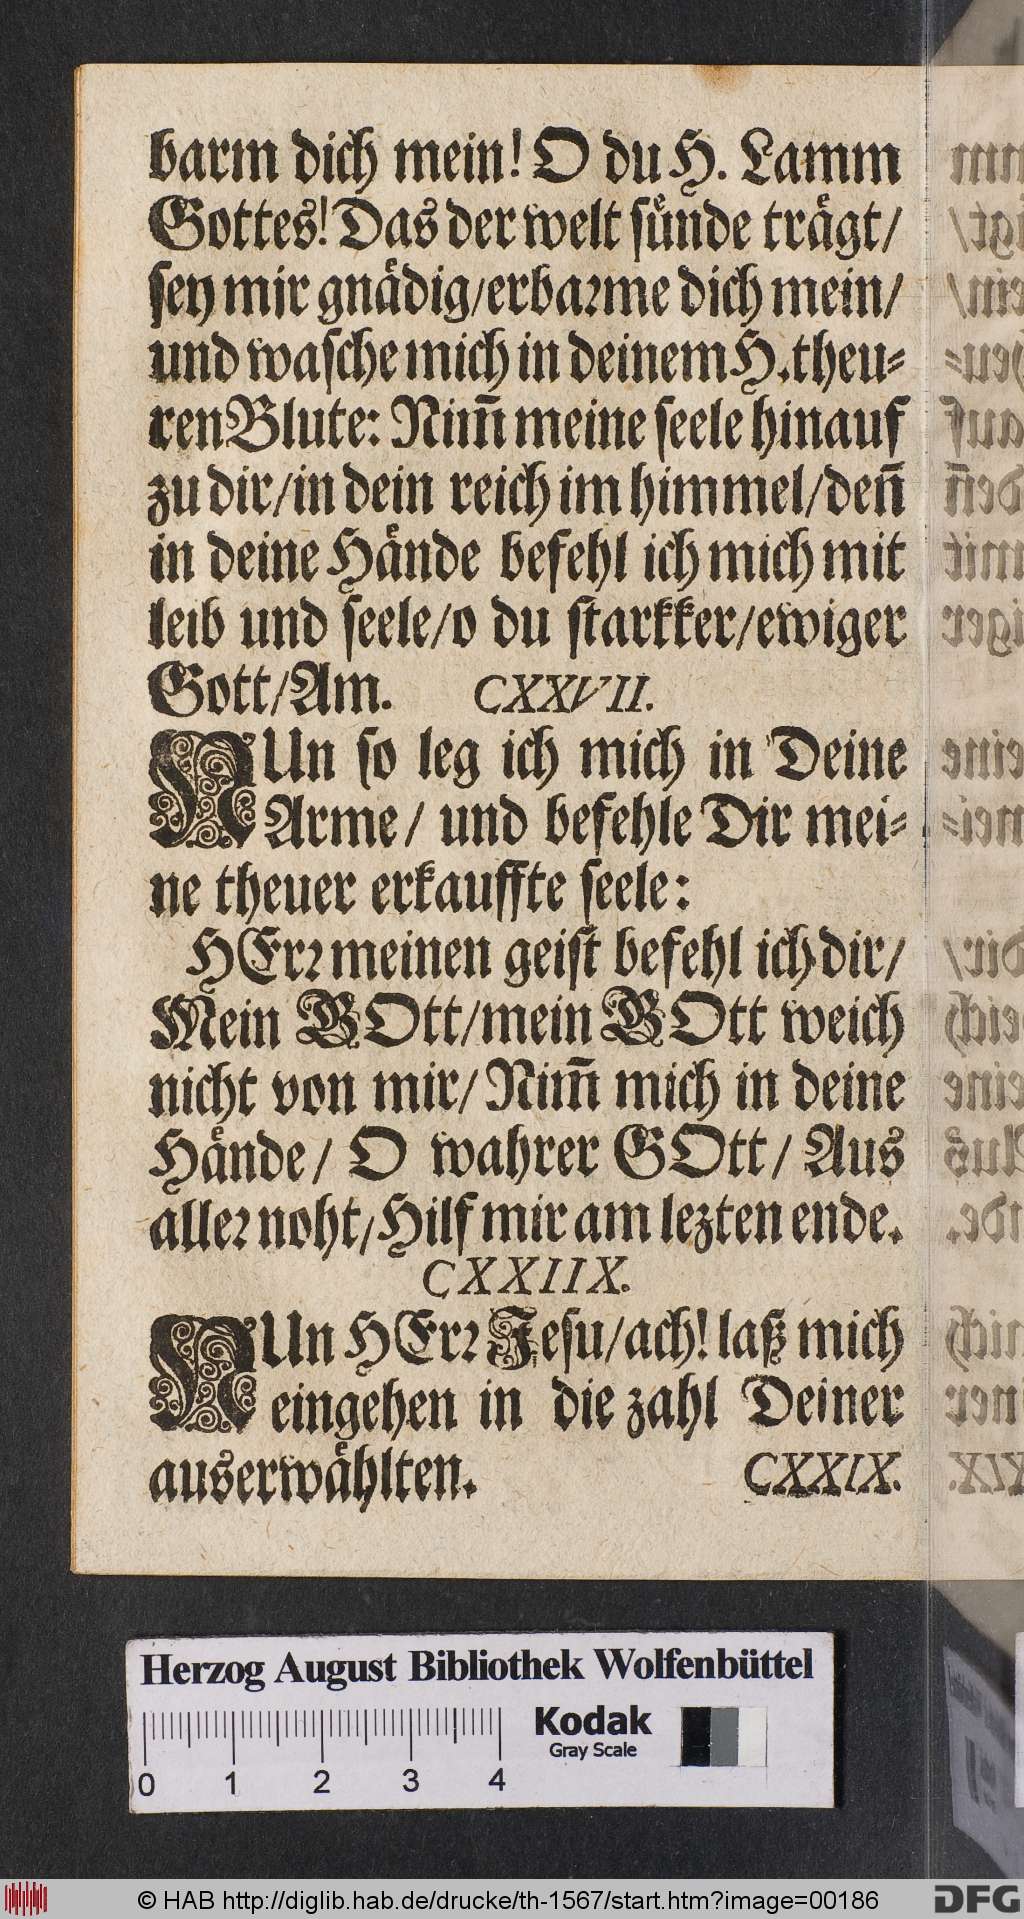 barm dich mein! O du H. Lamm
Gottes! Das der welt sünde trägt/
sey mir gnädig/erbarme dich mein/
und wasche mich in deinem H.theu-
ren Blute: Nim̃ meine seele hinauf
zu dir/in dein reich im himmel/den̄
in deine Hände befehl ich mich mit
leib und seele/o du starkker/ewiger
Gott/Am. CXXVII.
NUn so leg ich mich in Deine
Arme/ und befehle Dir mei-
ne theuer erkauffte seele:
HErr meinen geist befehl ich dir/
Mein GOtt/mein GOtt weich
nicht von mir/ Nim̃ mich in deine
Hände/ O wahrer GOtt/ Aus
aller noht/Hilf mir am lezten ende.
CXXIIX.
NUn HErr Jesu/ach! laß mich
eingehen in die zahl Deiner
auserwählten. CXXIX.
Herzog August Bibliothek Wolfenbüttel
Kodak
Gray Scale
0 1 2 3 4
© HAB http://diglib.hab.de/drucke/th-1567/start.htm?image=00186
DFG